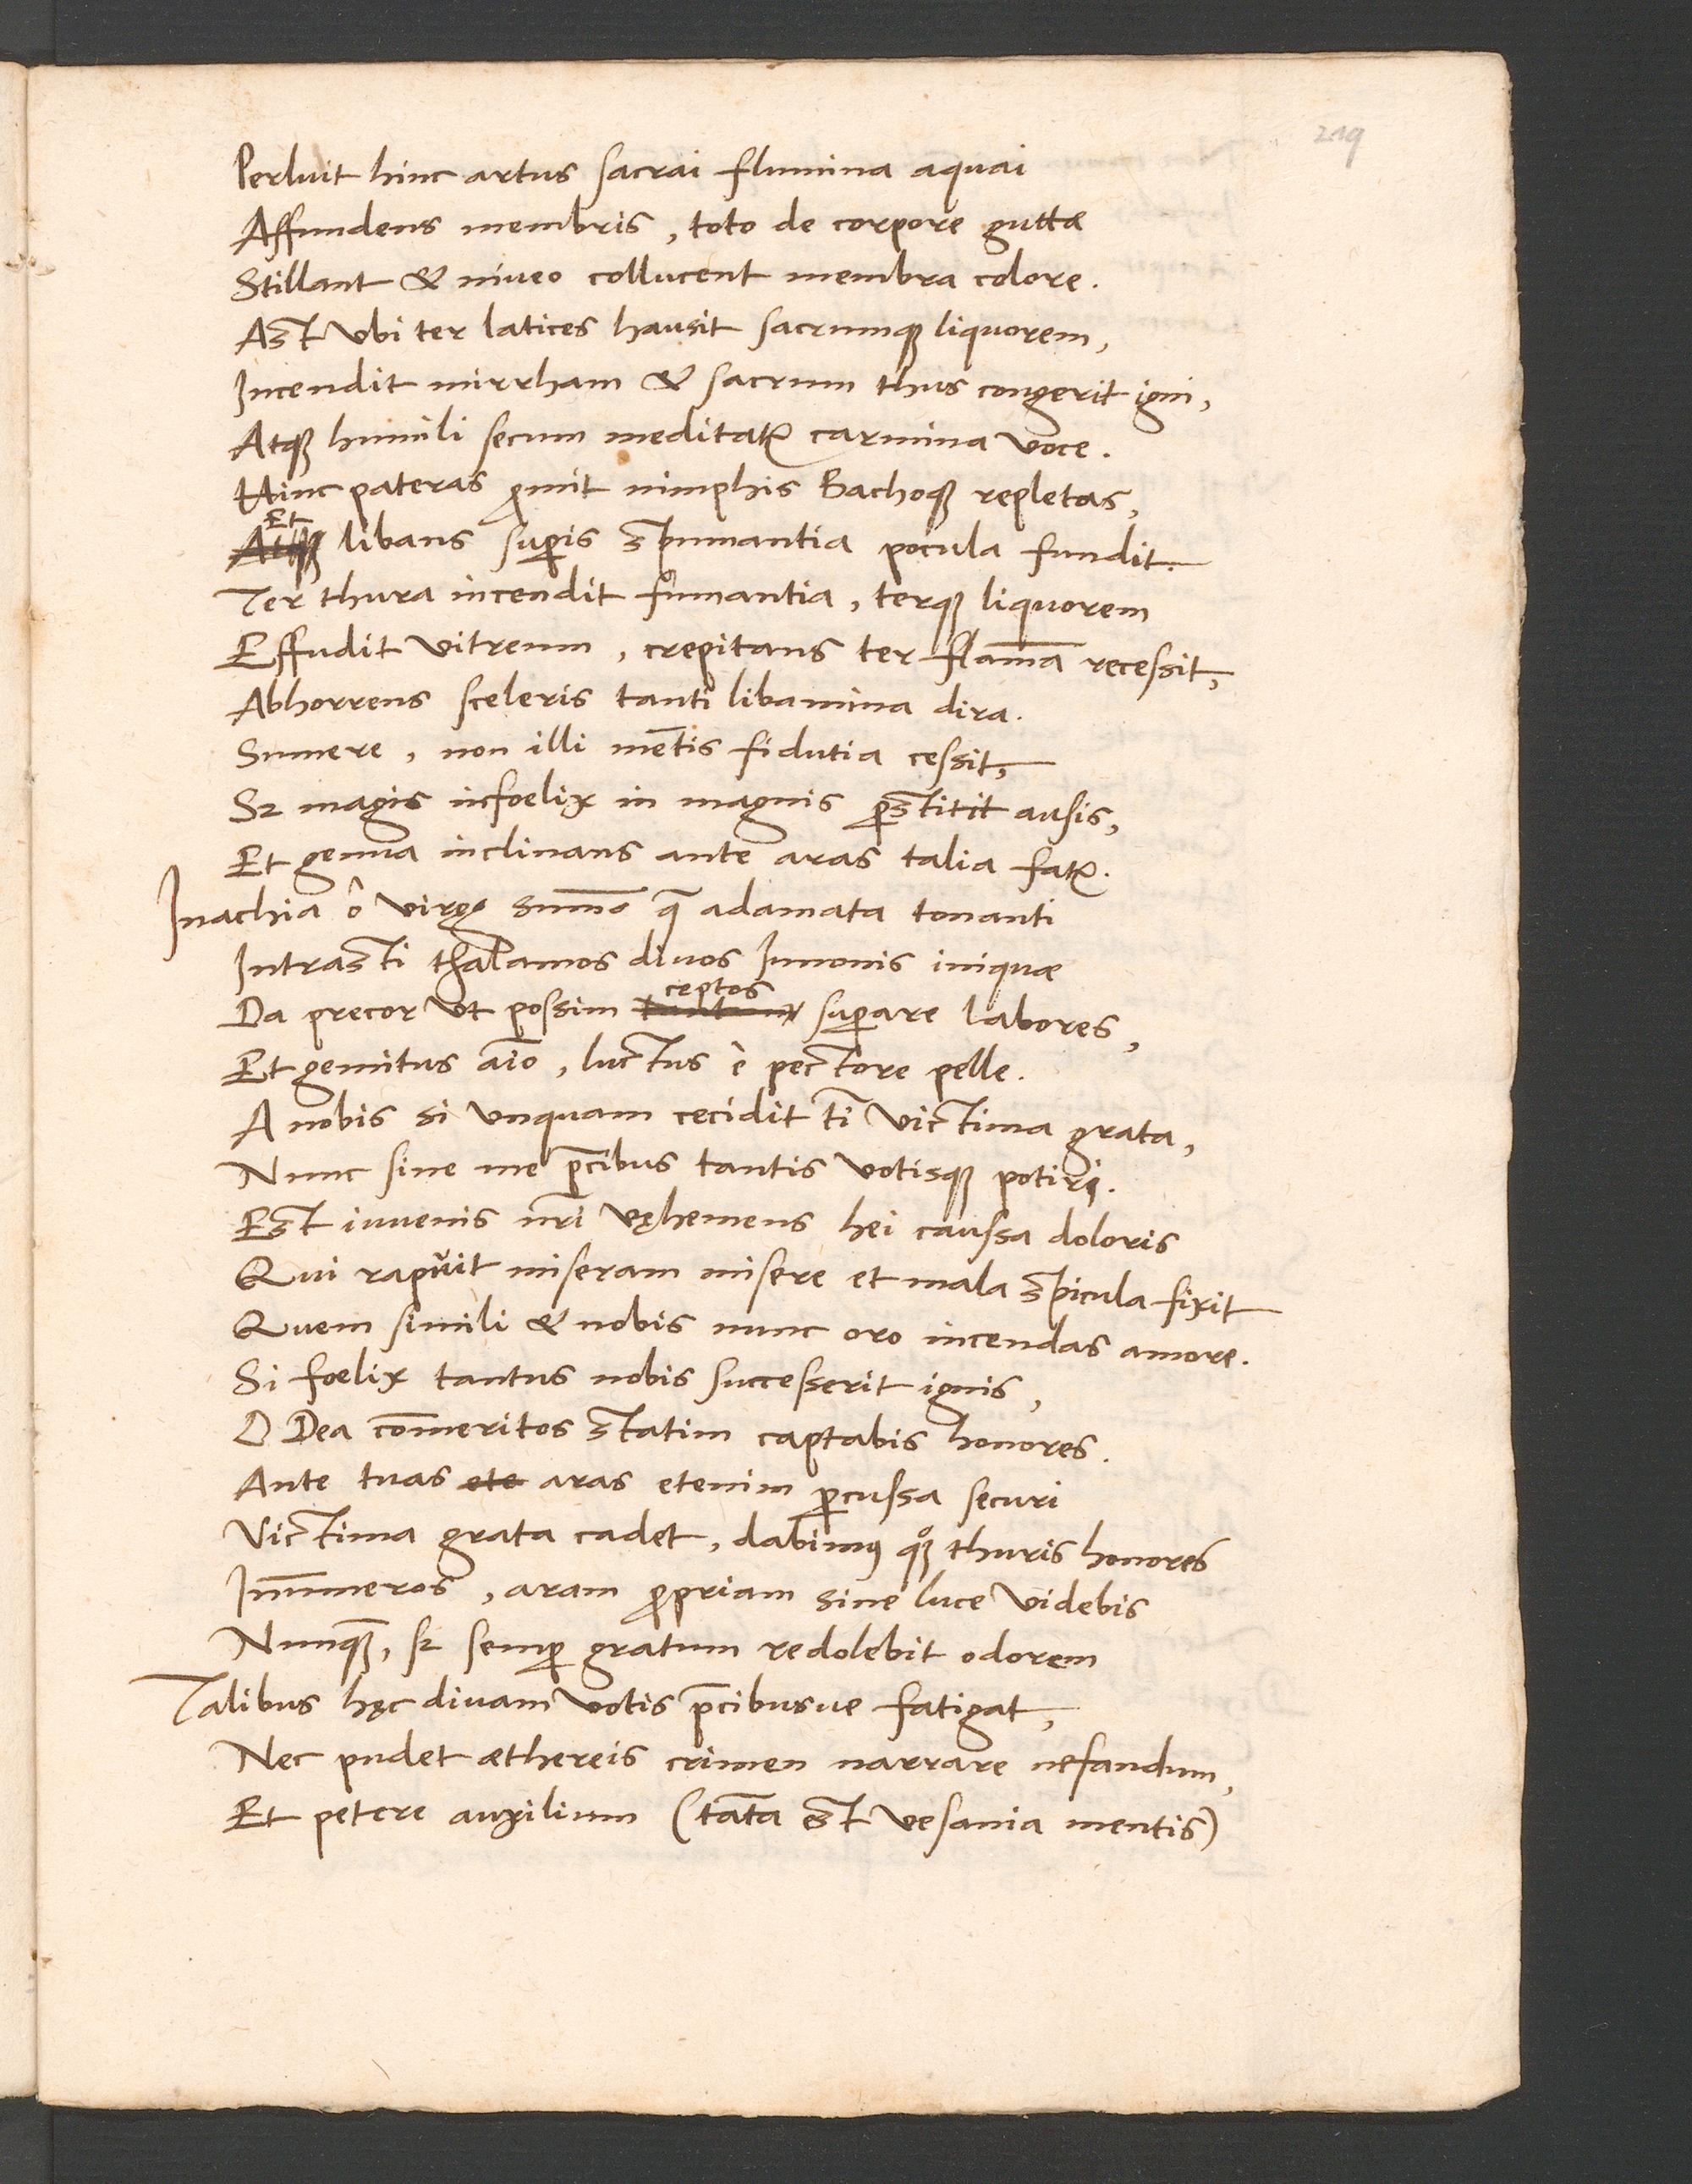 219
Perluit hinc artus sacrai flumina aquai
Affundens membris, toto de corpore guttæ
Stillant & niueo collucent membra colore.
Ast vbi ter latices hausit sacrumqꝫ liquorem,
Incendit mirrham & sacrum thus congerit igni,
Atqꝫ humili secum meditatꝛ carmina voce.
Hinc pateras ꝓmit nimphis Bachoqꝫ repletas,
Et
Atqꝫ libans suꝑis spumantia pocula fundit.
Ter thura incendit fumantia, terqꝫ liquorem
Effudit vitreum, crepitans ter flam̄a recessit,
Abhorrens sceleris tanti libamina dira.
Sumere, non illi mētis fidutia cessit,
Sꝫ magis infoelix in magnis ꝑstitit ausis,
Et genua inclinans ante aras talia fatꝛ.
Inachia ô virgo sum̄o q̄ adamata tonanti
Intrasti thalamos diuos Iunonis iniquæ
ceptos
Da precor vt possim tantum suꝑare labores,
Et gemitus aīo, luctus è pectore pelle.
A nobis si vnquam cecidit tī victima grata,
Nunc sine me p̄cibus tantis votisqꝫ potiri.
Est iuuenis nr̄i vęhemens hei caussa doloris
Qui rapuit miseram misere et mala spicula fixit
Quem simili & nobis nunc oro incendas amore.
Si foelix tantus nobis successerit ignis,
O Dea cōmeritos statim captabis honores.
Ante tuas ete aras etenim ꝑcussa securi
Victima grata cadet, dabimꝰ qͦꝫ thuris honores
Inūmeros, aram ꝓpriam sine luce videbis
Nunqꝫ, sꝫ semꝑ gratum redolebit odorem
Talibus hęc diuam votis p̄cibusue fatigat,
Nec pudet æthereis crimen narrare nefandum,
Et petere auxilium (tāta est vesania mentis)